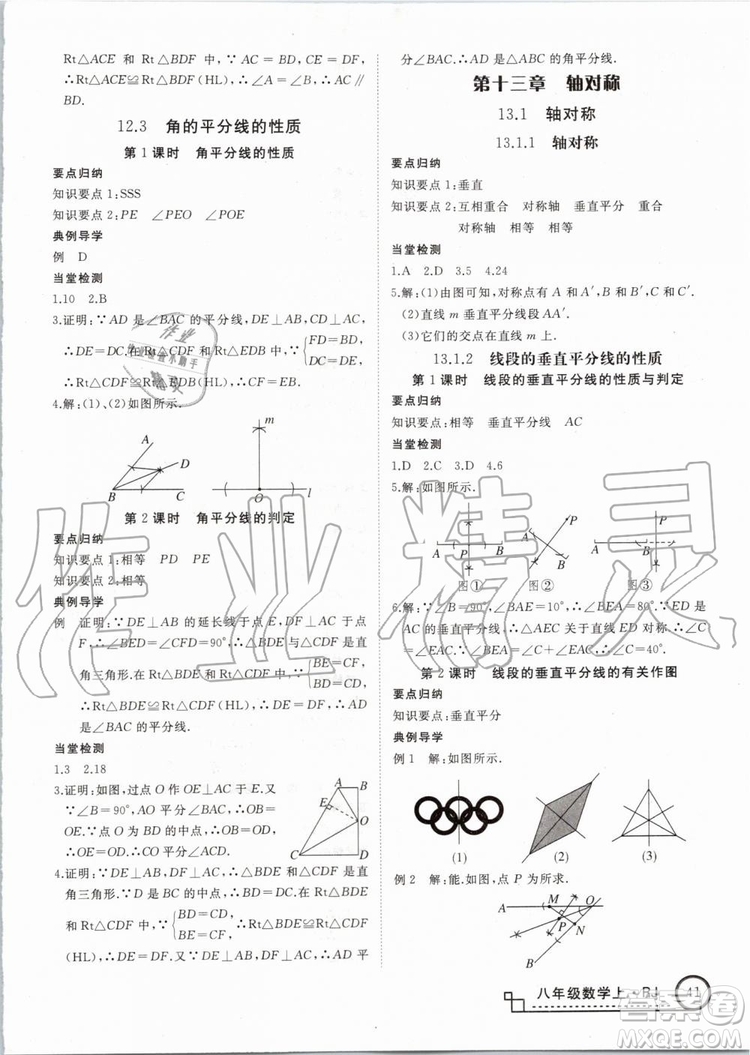 Rt△ACE 和 Rt△BDF 中,∵AC=BD,CE=DF,
∴Rt△ACE≌Rt△BDF(HL),∴∠A=∠B,∴AC
∥BD.
12.3 角的平分线的性质
第1课时 角平分线的性质
要点归纳
知识要点1:SSS
知识要点2:PE ∠PEO ∠POE
典例导学
例 D
当堂检测
1.10 2.B
3.证明:∵AD是∠BAC的平分线,DE⊥AB,CD⊥AC,
∴DE=DC.在Rt△CDF和Rt△EDB中, {FD=BD,
DC=DE,
∴Rt△CDF≌Rt△EDB(HL),∴CF=EB.
4.解:(1)、(2)如图所示.
A
D
B
C
m
O
l
第2课时 角平分线的判定
要点归纳
知识要点1:相等 PD PE
知识要点2:相等
典例导学
例 证明:∵DE⊥AB的延长线于点E,DF⊥AC于点
F,∴∠BED=∠CFD=90°,∴△BDE与△CDF是直
角三角形.在Rt△BDE和Rt△CDF中, {BE=CF,
BD=CD,
∴Rt△BDE≌Rt△CDF(HL),∴DE=DF,∴AD是
∠BAC的平分线.
当堂检测
1.3 2.18
3.证明:如图,过点O作OE⊥AC于E.
∵∠B=90°,AO平分∠BAC,∴OB=
OE.∵点O为BD的中点,∴OB=
OD,∴OE=OD.又∵∠D=90°,
∴OC平分∠ACD.
A
B
E
O
C
D
4.证明:∵DE⊥AB,DF⊥AC,∴△BDE与△CDF是直
角三角形.∵D是BC的中点,∴BD=CD.在Rt△BDE
和Rt△CDF中,∵{BD=CD,
BE=CF,
∴Rt△BDE≌Rt△CDF
(HL),∴DE=DF.∵DE⊥AB,DF⊥AC,∴AD平
分∠BAC.∴AD是△ABC的角平分线.
第十三章 轴对称
13.1 轴对称
13.1.1 轴对称
要点归纳
知识要点1:垂直
知识要点2:互相重合 对称轴 垂直平分 重合
对称轴 相等 相等
当堂检测
1.A 2.D 3.5 4.24
5.解:(1)由图可知,对称点有A和A′,B和B′,C和C′.
(2)直线m垂直平分线段AA′.
(3)它们的交点在直线m上.
13.1.2 线段的垂直平分线的性质
第1课时 线段的垂直平分线的性质与判定
要点归纳
知识要点:相等 垂直平分线 AC
当堂检测
1.D 2.C 3.D 4.6
5.解:如图所示.
A
P
B
A
B
P
A
B
P
图①
图②
图③
6.解:∵∠B=90°,∠BAE=10°,∴∠BEA=80°.∵ED是
AC的垂直平分线,∴△AEC关于直线ED对称,∴∠C
=∠EAC.∵∠BEA=∠C+∠EAC,∴∠C=40°.
第2课时 线段的垂直平分线的有关作图
要点归纳
知识要点:垂直平分
典例导学
例1 解:如图所示.
(1)
(2)
(3)
例2 解:能.如图,点P为所求.
A
M
O
P
N
B
八年级数学上·RJ
41
作业精灵
答案圈
MXQE.COM